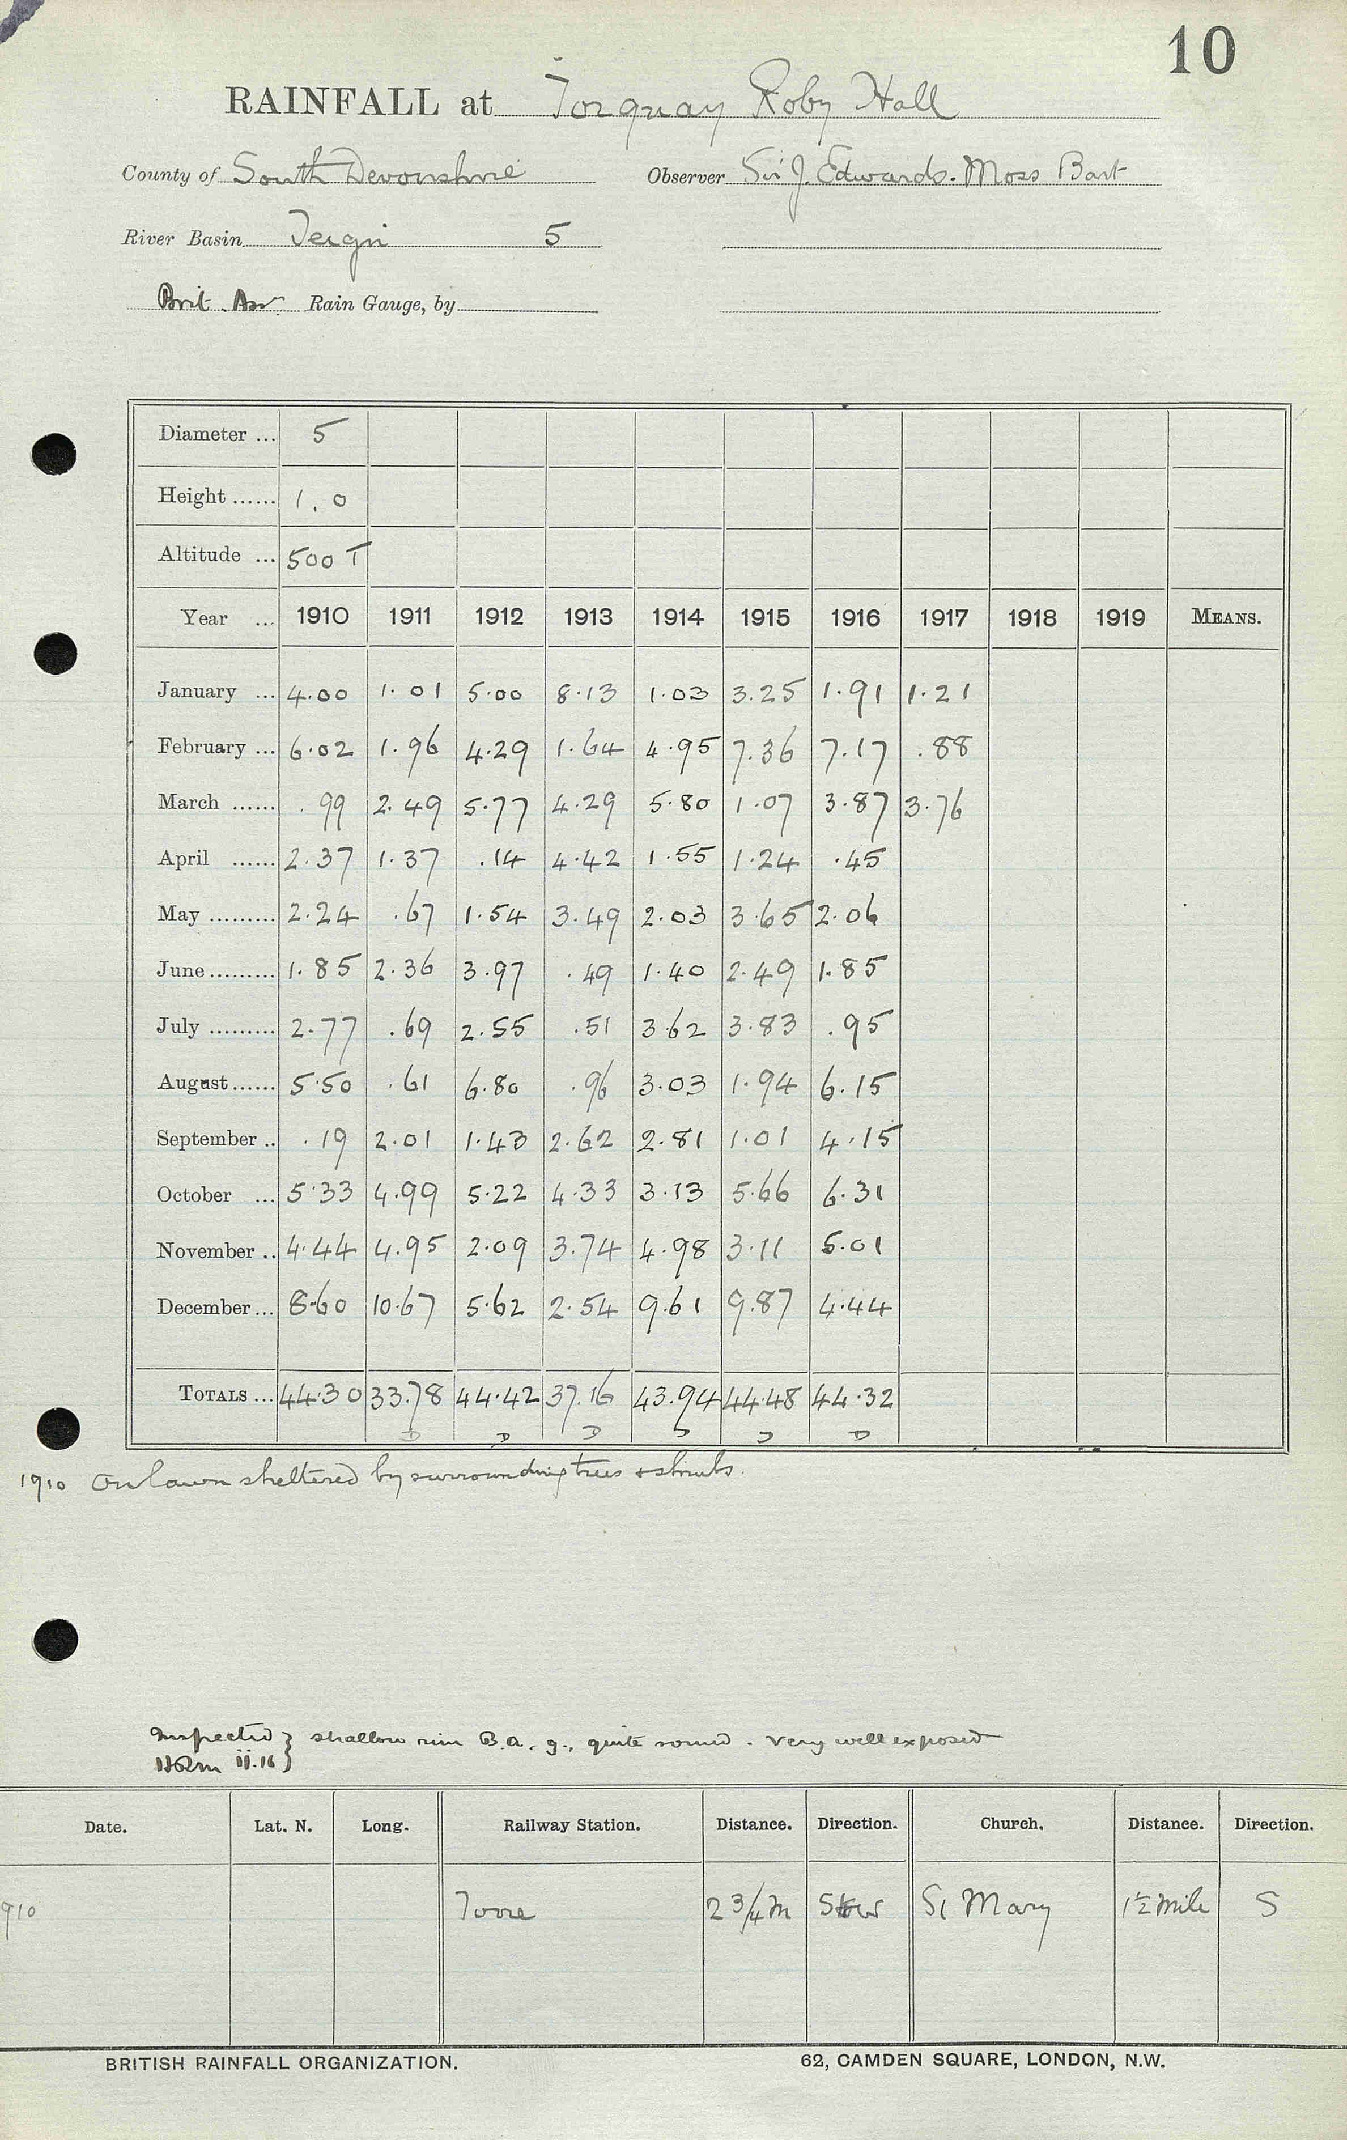 10
RAINFALL at Torquay Roby Hall
County of South Devonshire Observer Sir J. Edwards-Moss Bart
River Basin Teign 5
Brit. Ass Rain Gauge, by
Diameter ... 5
Height ...... 1.0
Altitude ... 500 T
Year ... 1910 1911 1912 1913 1914 1915 1916 1917 1918 1919 MEANS.
January ... 4.00 1.01 5.00 8.13 1.03 3.25 1.91 1.21
February ... 6.02 1.96 4.29 1.64 4.95 7.36 7.17 .88
March ...... .99 2.49 5.77 4.29 5.80 1.07 3.87 3.76
April ...... 2.37 1.37 .14 4.42 1.55 1.24 .45
May ......... 2.24 .67 1.54 3.49 2.03 3.65 2.06
June ......... 1.85 2.36 3.97 .49 1.40 2.49 1.85
July ......... 2.77 .69 2.55 .51 3.62 3.83 .95
August ...... 5.50 .61 6.80 .96 3.03 1.94 6.15
September .. .19 2.01 1.43 2.62 2.81 1.01 4.15
October ... 5.33 4.99 5.22 4.33 3.13 5.66 6.31
November .. 4.44 4.95 2.09 3.74 4.98 3.11 5.01
December ... 8.60 10.67 5.62 2.54 9.61 9.87 4.44
TOTALS ... 44.30 33.78 44.42 37.16 43.94 44.48 44.32
D D D D D D
1910 On lawn sheltered by surrounding trees & shrubs.
Inspected } shallow rim B.A. g., quite sound. Very well exposed
HRM ii.16 }
Date. Lat. N. Long. Railway Station. Distance. Direction. Church. Distance. Direction.
910 Torre 2 3/4 m St Mary 1½ mile S
BRITISH RAINFALL ORGANIZATION. 62, CAMDEN SQUARE, LONDON, N.W.